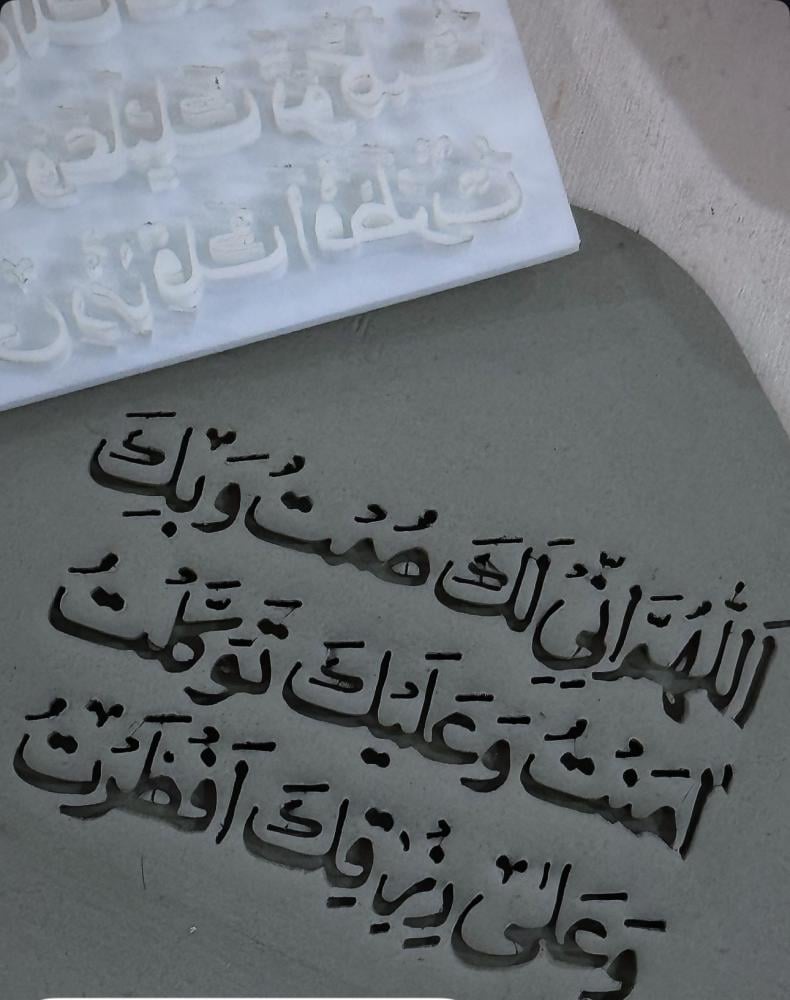 اَللّٰهُمَّ اِنِّي لَكَ صُمْتُ وَبِكَ
اٰمَنْتُ وَعَلَيْكَ تَوَكَّلْتُ
وَعَلٰى رِزْقِكَ اَفْطَرْتُ